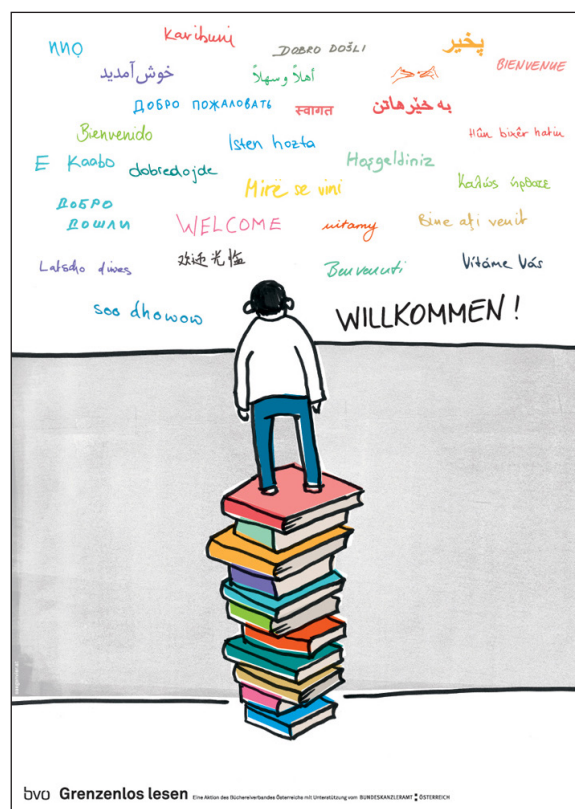 Karibuni
DOBRO DOŠLI
پخیر
BIENVENUE
خوش آمدید
أهلاً وسهلاً
ДОБРО ПОЖАЛОВАТЬ
स्वागत
به خێر هاتن
Bienvenido
Isten hozta
Hûn bixêr hatin
E Kaabo
dobredojde
Hoşgeldiniz
Mirë se vini
ДОБРО
ДОШЛИ
WELCOME
witamy
Bine aţi venit
Latscho diwes
欢迎光临
Benvenuti
Vítáme Vás
soo dhowow
WILLKOMMEN!
bvö Grenzenlos lesen Eine Aktion des Büchereiverbandes Österreichs mit Unterstützung von BUNDESKANZLERAMT ÖSTERREICH